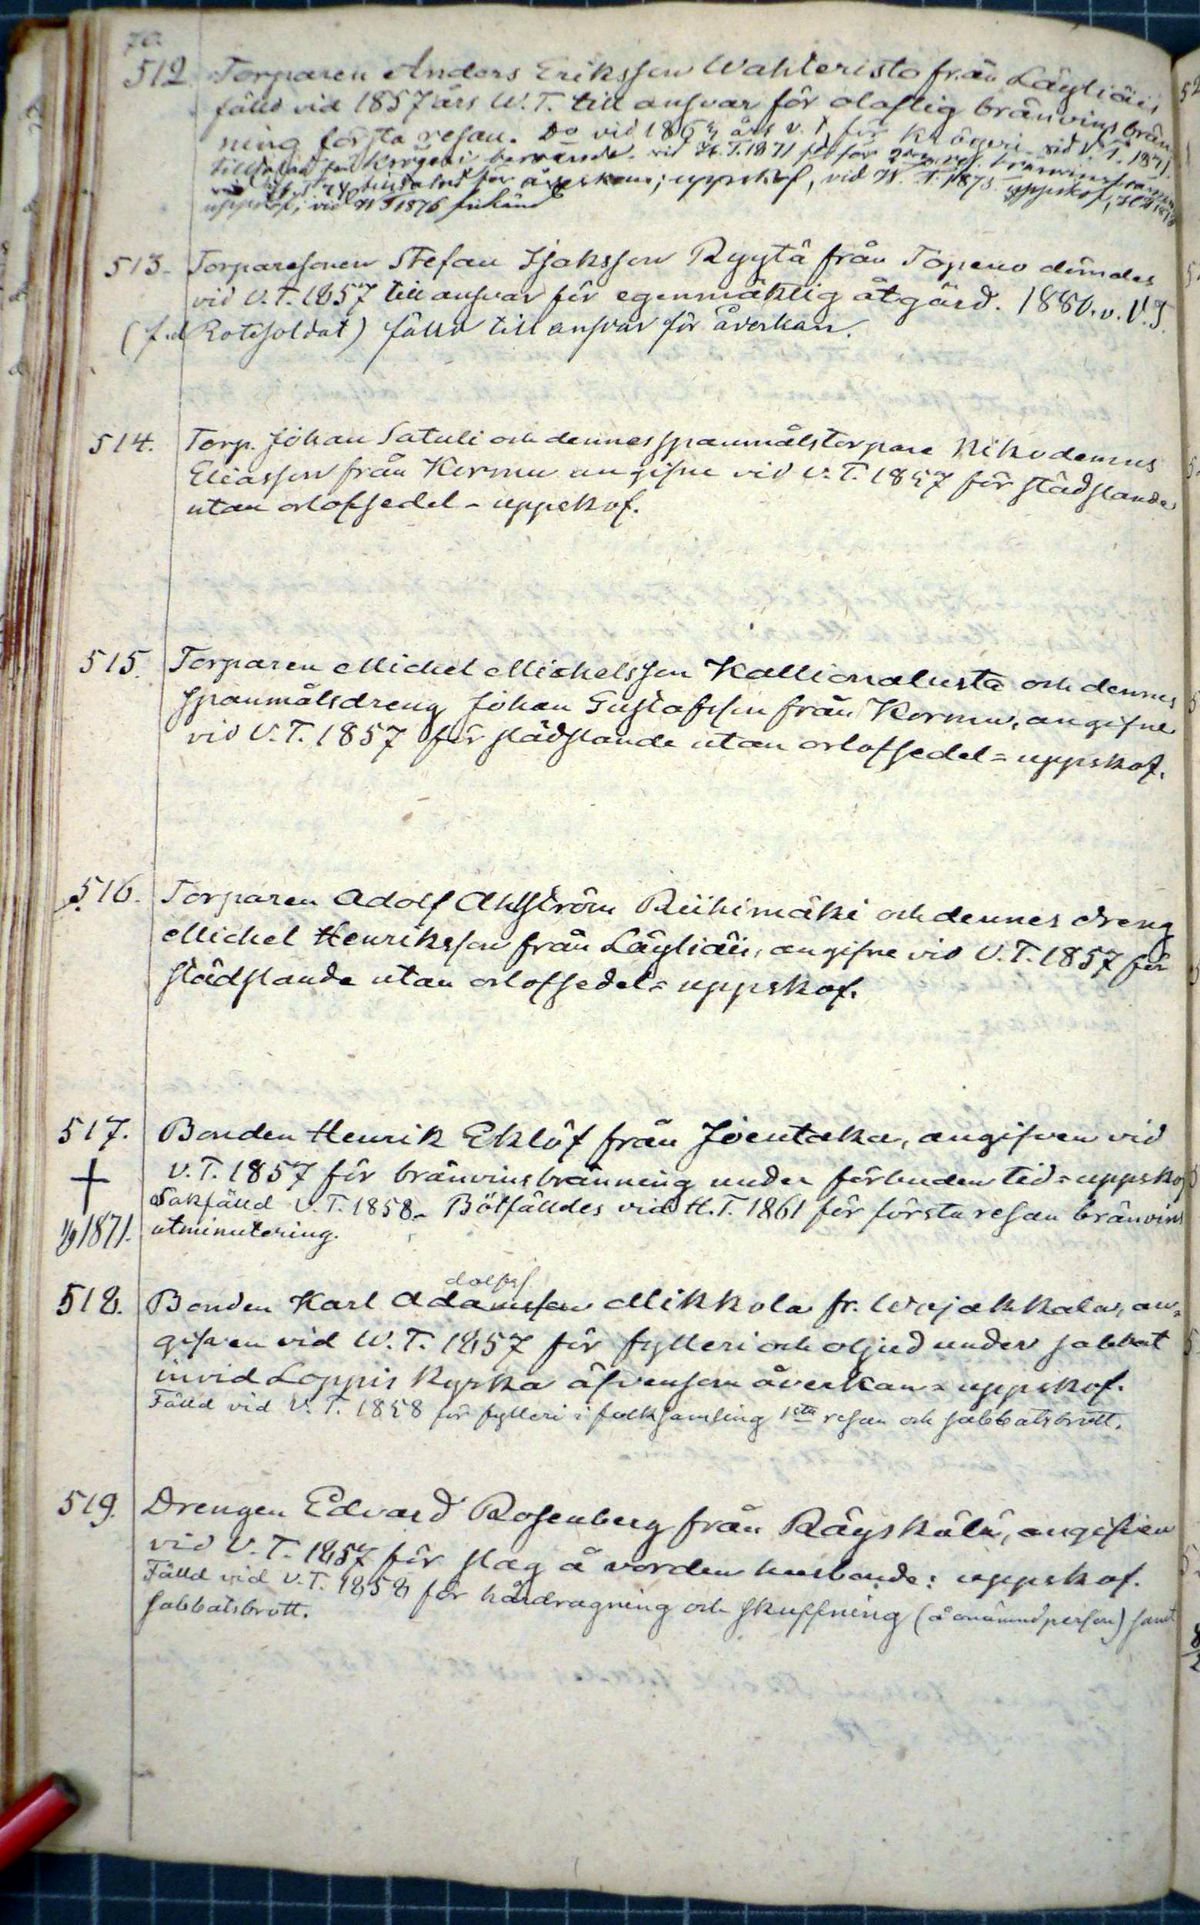 70.
512 Torparen Anders Eriksson Wahteristo från Läyliäis
fälld vid 1857 års W.T. till ansvar för olaflig bränvinsbrän-
ning första resan. Do vid 1863 års V.T. för krögeri. vid V.T. 1871
tilltalad för krögeri beroende. vid H.T. 1871 för 2dra res. bränvins
tilltalad för åverkan; uppskof, vid H.T. 1873 uppskof,
uppskof; vid H.T. 1876
513. Torparesonen Stefan Isaksson Ryytä från Topeno dömdes
vid V.T. 1857 till ansvar för egenmäktig åtgärd. 1880. v. V.T.
(f.d. Rotesoldat) fälld till ansvar för åverkan.
514. Torp. Johan Satuli och dennes spanmålstorpare Nikodemus
Eliasson från Kormu angifne vid V.T. 1857 för städslande
utan orlofsedel - uppskof.
515. Torparen Michel Michelsson Kallionalusta och dennes
spanmålsdreng Johan Gustafsson från Kormu, angifne
vid V.T. 1857 för städslande utan orlofsedel = uppskof.
516. Torparen Adolf Ahlström Riihimäki och dennes dreng
Michel Henriksson från Läyliäis, angifne vid V.T. 1857 för
städslande utan orlofsedel = uppskof.
517. Bonden Henrik Eklöf från Joentaka, angifven vid
V.T. 1857 för bränvinsbränning under förbuden tid = uppskof
Sakfälld V.T. 1858. Bötfälldes vid H.T. 1861 för första resan bränvins
1/9 1871. utminutering.
dolfss
518. Bonden Karl Adamsson Mikkola fr. Wojakkala, an-
gifven vid W.T. 1857 för fylleri och oljud under sabbat
invid Loppis kyrka äfvensom åverkan = uppskof.
Fälld vid V.T. 1858 för fylleri i folksamling 1sta resan och sabbatsbrott.
519. Drengen Edvard Rosenberg från Räyskälä, angifven
vid V.T. 1857 för slag å vorden husbonde: uppskof.
Fälld vid V.T. 1858 för hårdragning och skuffning (å onämnd person) samt
sabbatsbrott.